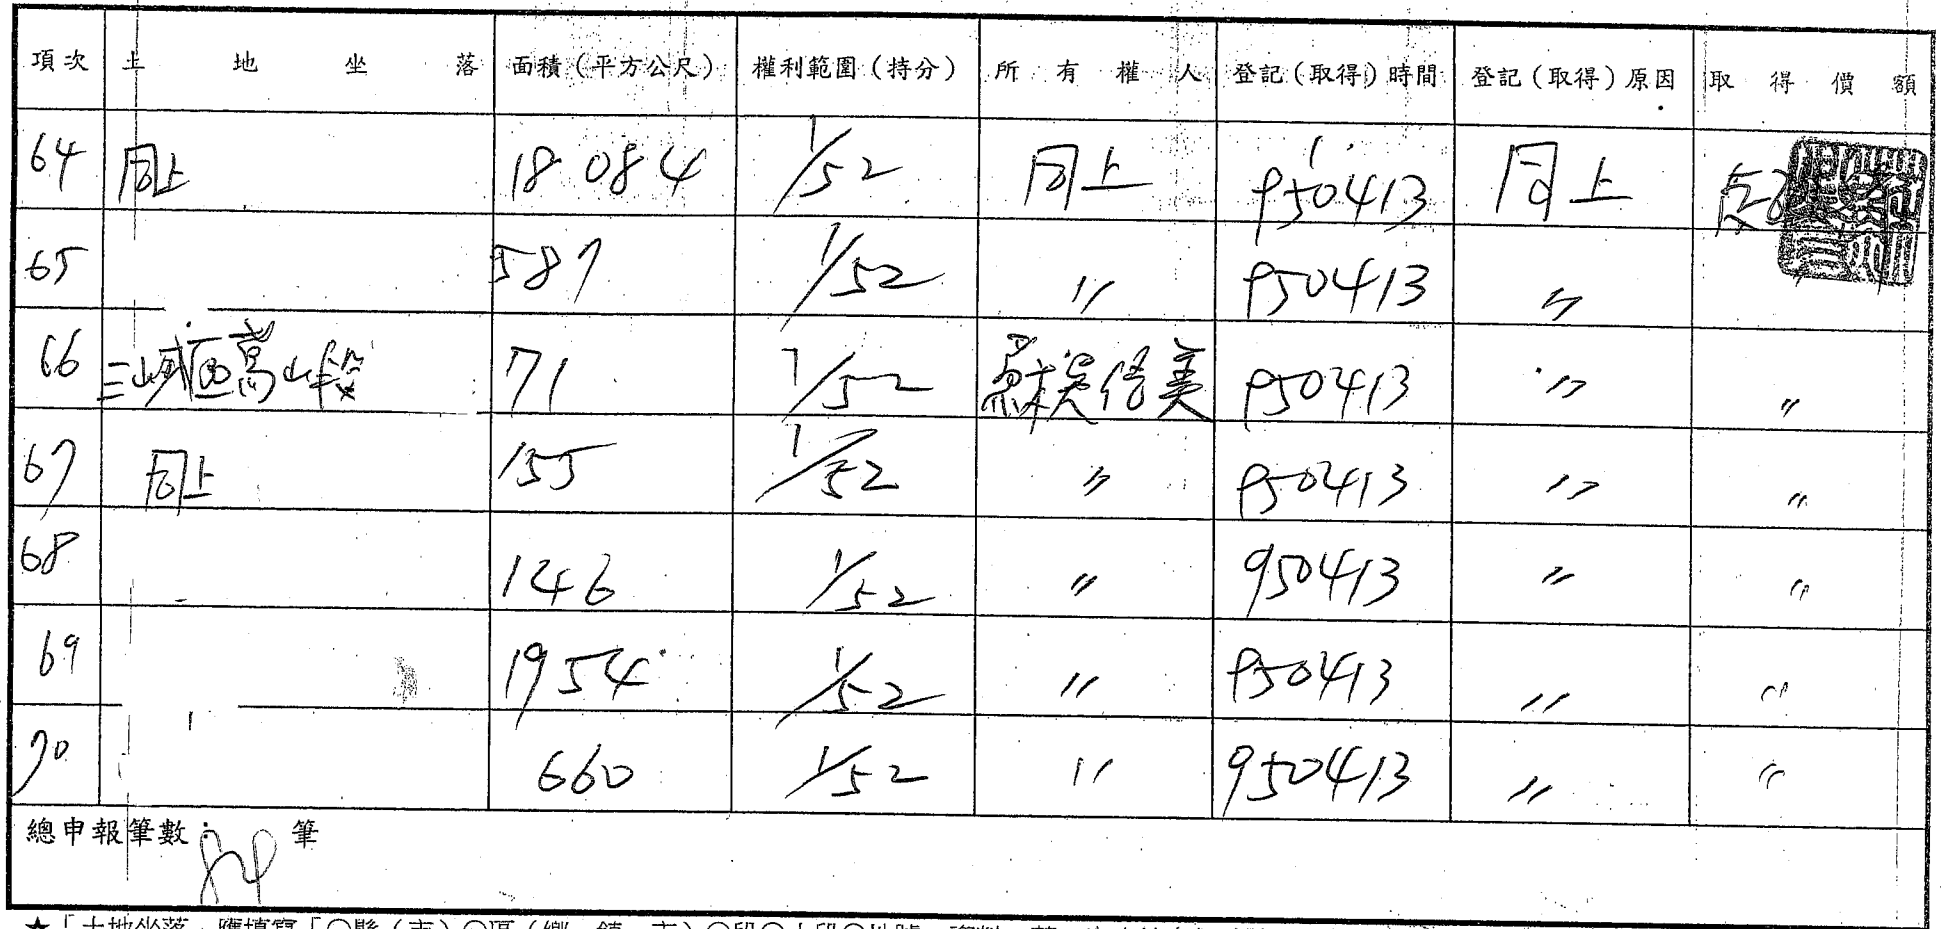 項次 土地坐落 面積（平方公尺） 權利範圍（持分） 所有權人 登記（取得）時間 登記（取得）原因 取得價額
64 同上 18084 1/52 同上 950413 同上
65 587 1/52 〃 950413 〃 〃
66 三峽區嵩山段 71 1/52 950413 〃 〃
67 同上 155 1/52 〃 950413 〃 〃
68 146 1/52 〃 950413 〃 〃
69 1954 1/52 〃 950413 〃 〃
70 660 1/52 〃 950413 〃 〃
總申報筆數： 筆